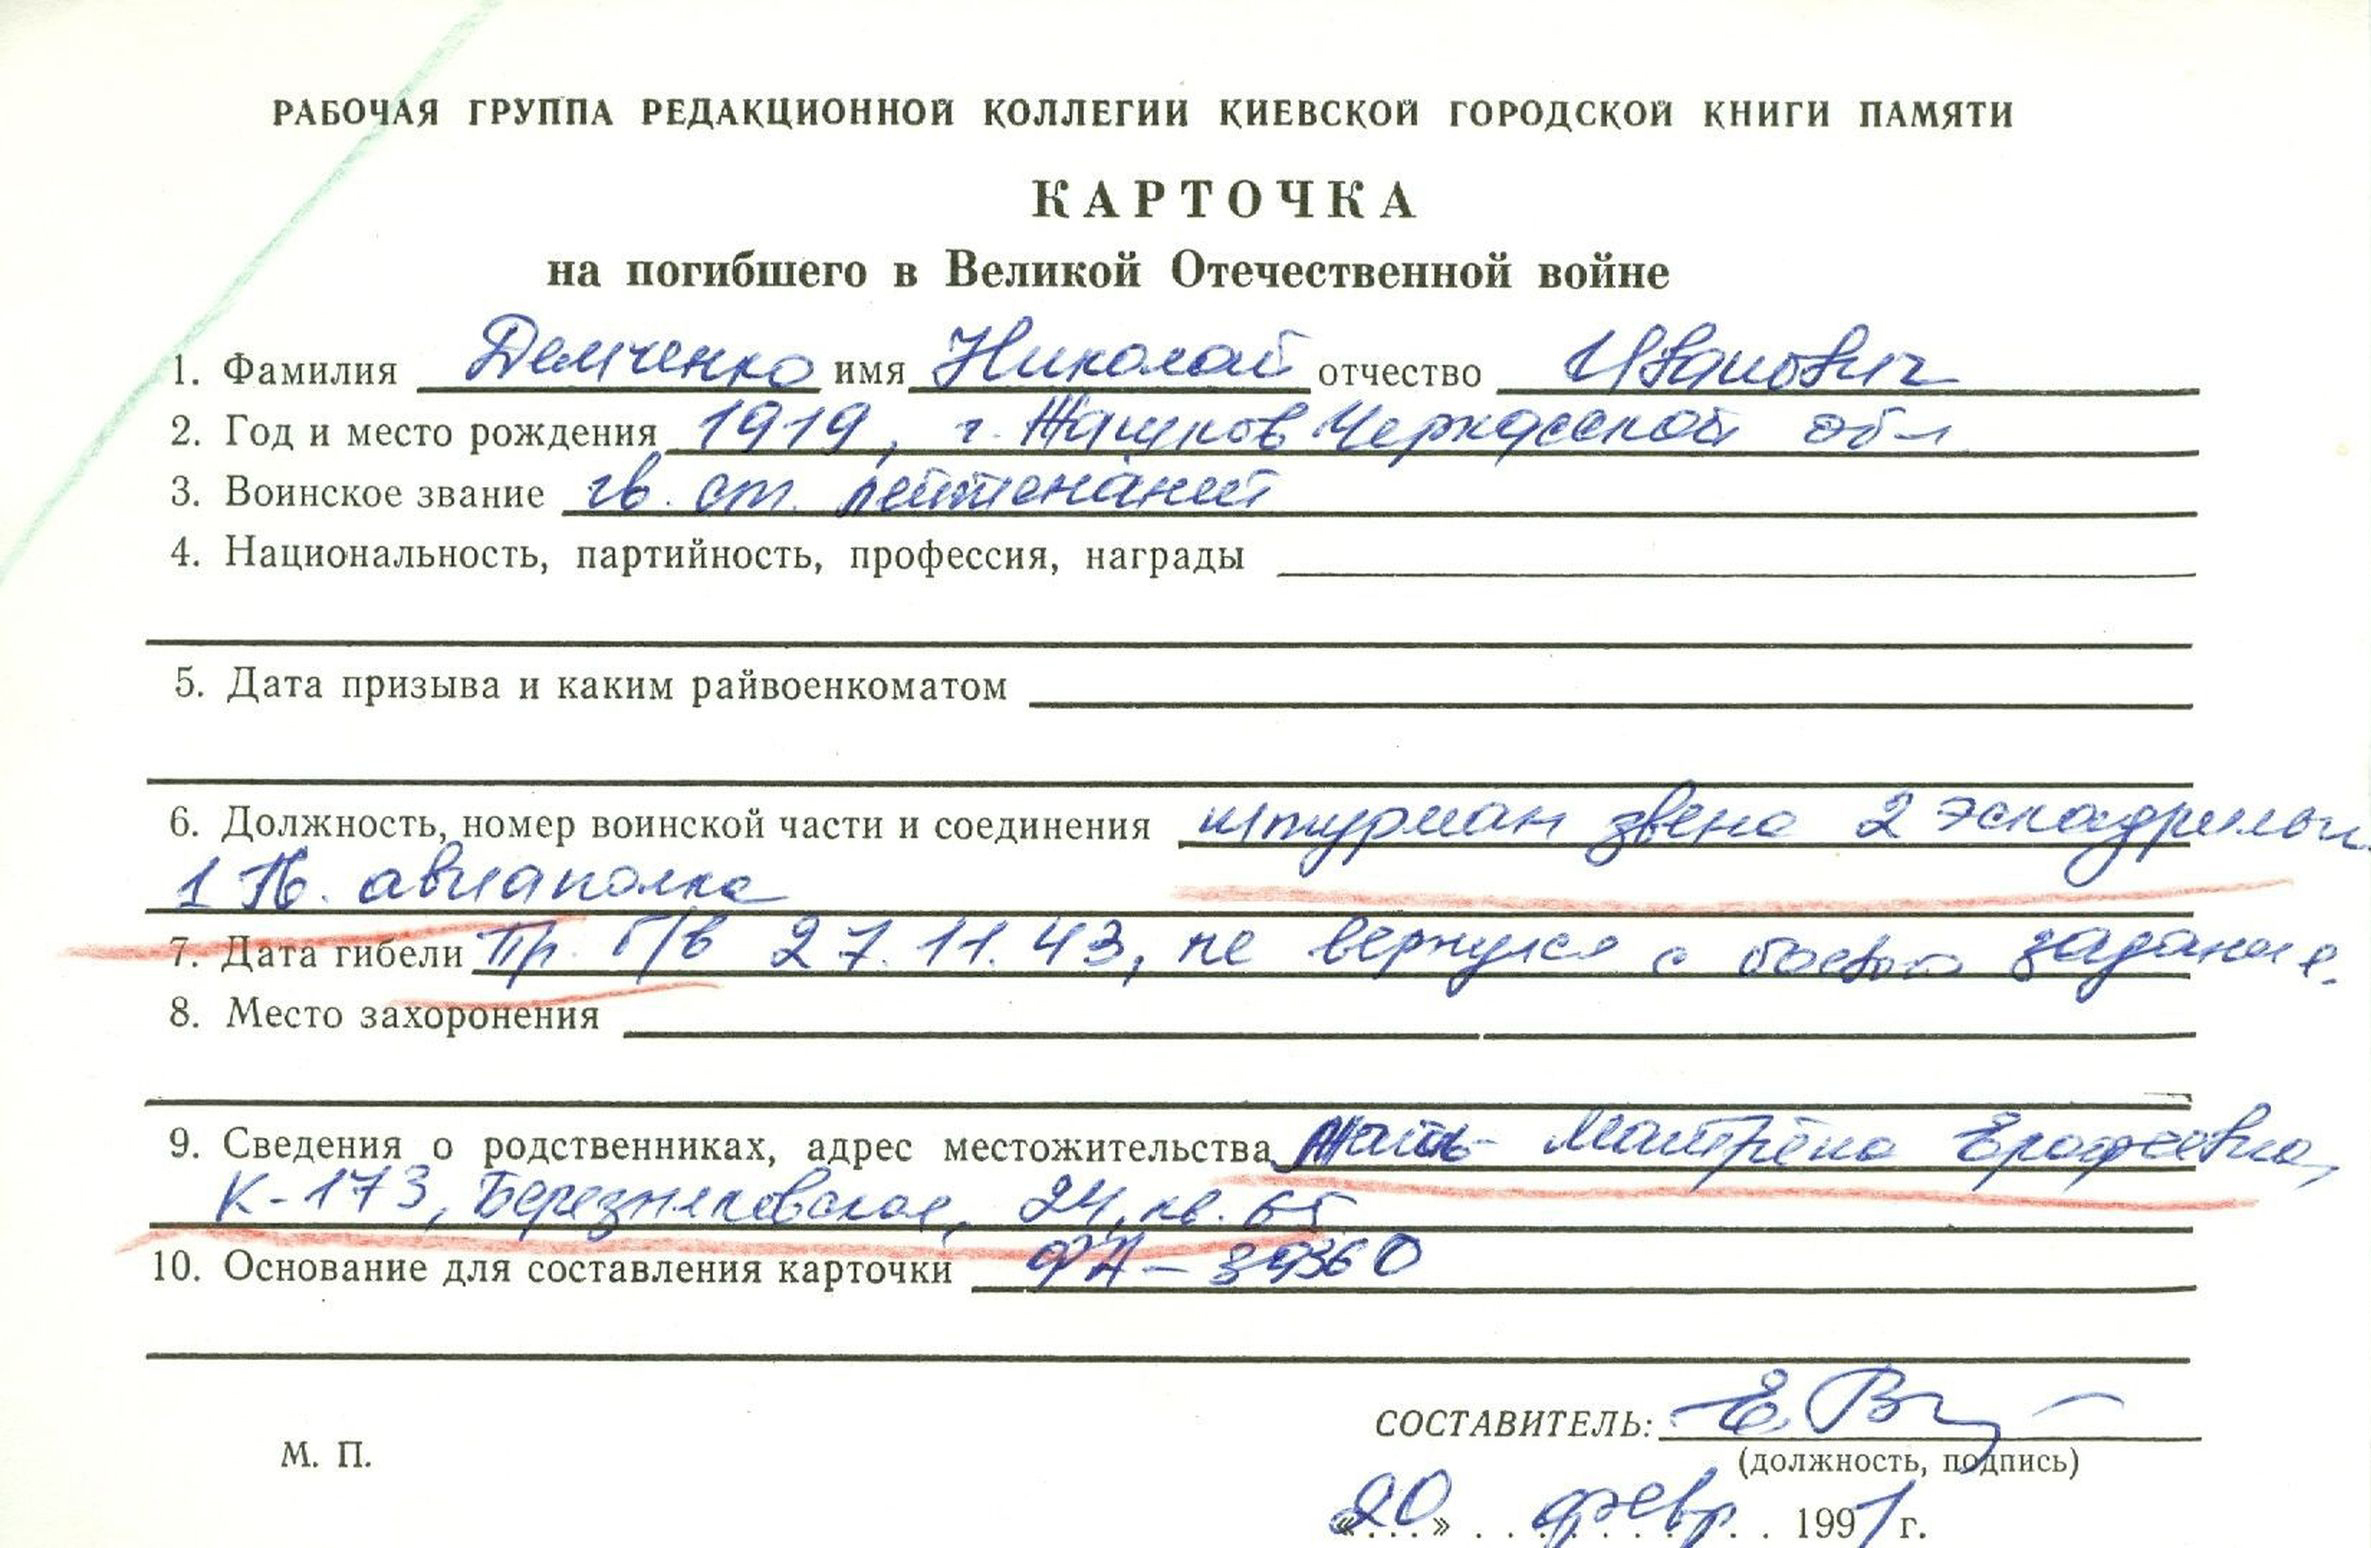 РАБОЧАЯ ГРУППА РЕДАКЦИОННОЙ КОЛЛЕГИИ КИЕВСКОЙ ГОРОДСКОЙ КНИГИ ПАМЯТИ
КАРТОЧКА
на погибшего в Великой Отечественной войне
1. Фамилия Демченко имя Николай отчество Иванович
2. Год и место рождения 1919, г. Жашков Черкасской обл
3. Воинское звание гв. ст. лейтенант
4. Национальность, партийность, профессия, награды
5. Дата призыва и каким райвоенкоматом
6. Должность, номер воинской части и соединения штурман звена 2 эскадрильи
1 гв. авиаполка
7. Дата гибели Пр. б/в 27.11.43, не вернулся с боевого задания.
8. Место захоронения
9. Сведения о родственниках, адрес местожительства Мать - Матрёна Ерофеевна,
К-173, Березняковская, 24, кв. 65
10. Основание для составления карточки
СОСТАВИТЕЛЬ: Е. В
М. П.
(должность, подпись)
«20» февр. 1991 г.